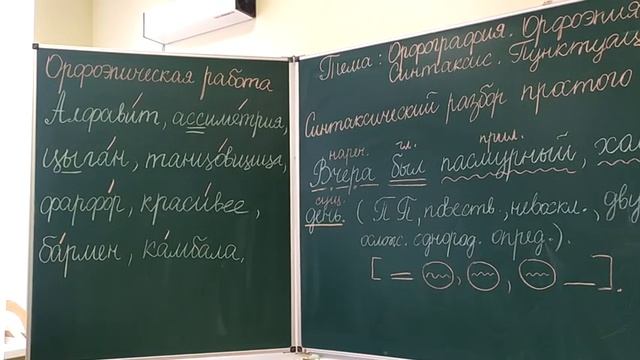 Орфоэпическая работа
Алфави́т, ассиме́трия,
цыга́н, танцо́вщица,
фарфо́р, краси́вее,
ба́рмен, ка́мбала,
Тема: Орфография. Орфоэпия
Синтаксис.
Синтаксический разбор простого
нареч. гл. прил.
Вчера был пасмурный,
сущ.
день. (ПП, повеств., невоскл.,
ослож. однород. опред.).